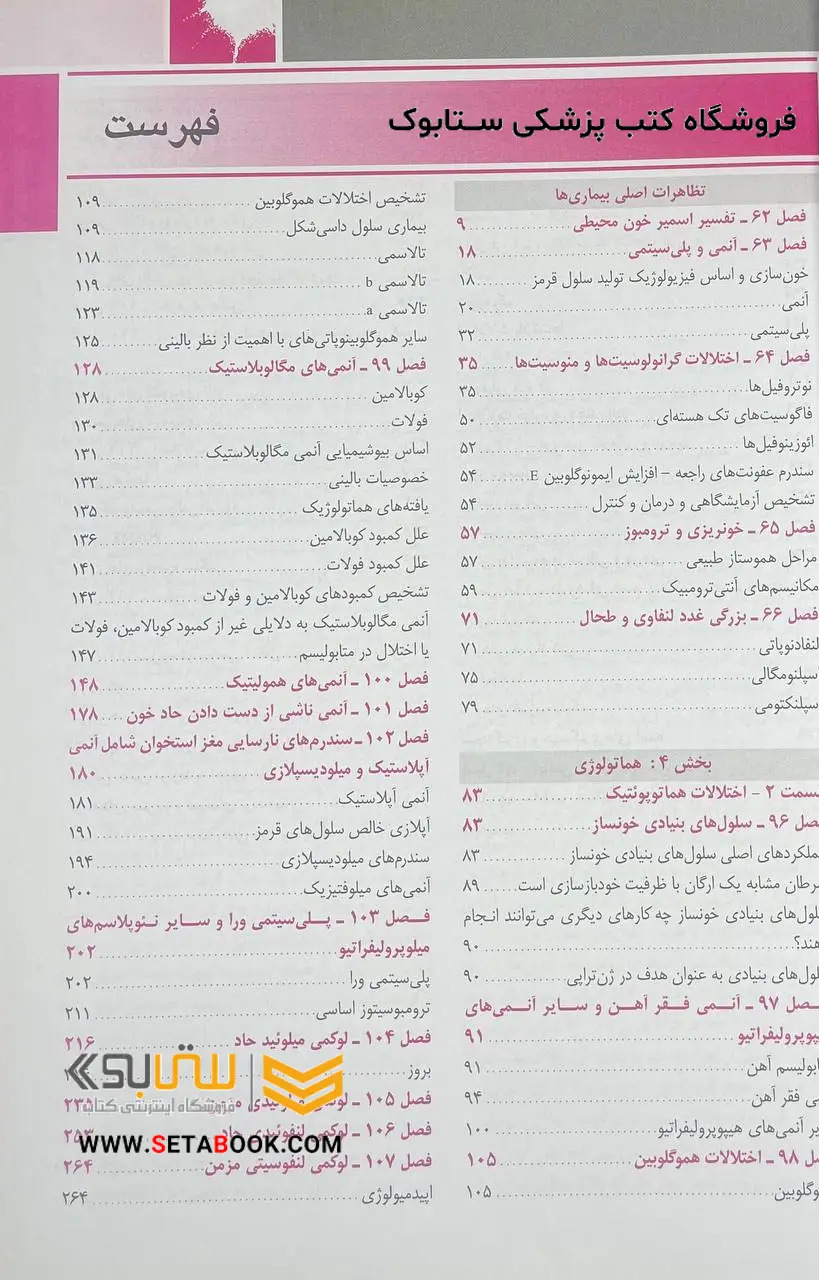 فروشگاه کتب پزشکی ستابوک
فهرست
تظاهرات اصلی بیماری‌ها
فصل ۶۲ ـ تفسیر اسمیر خون محیطی ۹
فصل ۶۳ ـ آنمی و پلی‌سیتمی ۱۸
خون‌سازی و اساس فیزیولوژیک تولید سلول قرمز ۱۸
آنمی ۲۰
پلی‌سیتمی ۳۲
فصل ۶۴ ـ اختلالات گرانولوسیت‌ها و منوسیت‌ها ۳۵
نوتروفیل‌ها ۳۵
فاگوسیت‌های تک هسته‌ای ۵۰
ائوزینوفیل‌ها ۵۲
سندرم عفونت‌های راجعه – افزایش ایمونوگلوبین E ۵۴
تشخیص آزمایشگاهی و درمان و کنترل ۵۴
فصل ۶۵ ـ خونریزی و ترومبوز ۵۷
مراحل هموستاز طبیعی ۵۷
مکانیسم‌های آنتی‌ترومبیک ۵۹
فصل ۶۶ ـ بزرگی غدد لنفاوی و طحال ۷۱
لنفادنوپاتی ۷۱
اسپلنومگالی ۷۵
سپلنکتومی ۷۹
بخش ۴: هماتولوژی
سمت ۲ – اختلالات هماتوپوئتیک ۸۳
صل ۹۶ ـ سلول‌های بنیادی خونساز ۸۳
ملکردهای اصلی سلول‌های بنیادی خونساز ۸۳
رطان مشابه یک ارگان با ظرفیت خودبازسازی است ۸۹
لول‌های بنیادی خونساز چه کارهای دیگری می‌توانند انجام
هند؟ ۹۰
لول‌های بنیادی به عنوان هدف در ژن‌تراپی ۹۰
صل ۹۷ ـ آنمی فقر آهن و سایر آنمی‌های
یپوپرولیفراتیو ۹۱
ابولیسم آهن ۹۱
ی فقر آهن ۹۴
یر آنمی‌های هیپوپرولیفراتیو ۱۰۰
ل ۹۸ ـ اختلالات هموگلوبین ۱۰۵
وگلوبین ۱۰۵
تشخیص اختلالات هموگلوبین ۱۰۹
بیماری سلول داسی‌شکل ۱۰۹
تالاسمی ۱۱۸
تالاسمی b ۱۱۹
تالاسمی a ۱۲۳
سایر هموگلوبینوپاتی‌های با اهمیت از نظر بالینی ۱۲۵
فصل ۹۹ ـ آنمی‌های مگالوبلاستیک ۱۲۸
کوبالامین ۱۲۸
فولات ۱۳۰
اساس بیوشیمیایی آنمی مگالوبلاستیک ۱۳۱
خصوصیات بالینی ۱۳۳
یافته‌های هماتولوژیک ۱۳۵
علل کمبود کوبالامین ۱۳۶
علل کمبود فولات ۱۴۱
تشخیص کمبودهای کوبالامین و فولات ۱۴۳
آنمی مگالوبلاستیک به دلایلی غیر از کمبود کوبالامین، فولات
یا اختلال در متابولیسم ۱۴۷
فصل ۱۰۰ ـ آنمی‌های همولیتیک ۱۴۸
فصل ۱۰۱ ـ آنمی ناشی از دست دادن حاد خون ۱۷۸
فصل ۱۰۲ ـ سندرم‌های نارسایی مغز استخوان شامل آنمی
آپلاستیک و میلودیسپلازی ۱۸۰
آنمی آپلاستیک ۱۸۱
آپلازی خالص سلول‌های قرمز ۱۹۱
سندرم‌های میلودیسپلازی ۱۹۴
آنمی‌های میلوفتیزیک ۲۰۰
فصل ۱۰۳ ـ پلی‌سیتمی ورا و سایر نئوپلاسم‌های
میلوپرولیفراتیو ۲۰۲
پلی‌سیتمی ورا ۲۰۲
ترومبوسیتوز اساسی ۲۱۱
فصل ۱۰۴ ـ لوکمی میلوئید حاد ۲۱۶
بروز
فصل ۱۰۵ ـ لوکمی ۲۳۵
فصل ۱۰۶ ـ لوکمی لنفوئیدی حاد ۲۵۳
فصل ۱۰۷ ـ لوکمی لنفوسیتی مزمن ۲۶۴
اپیدمیولوژی ۲۶۴
ستابوک
فروشگاه اینترنتی کتاب
WWW.SETABOOK.COM